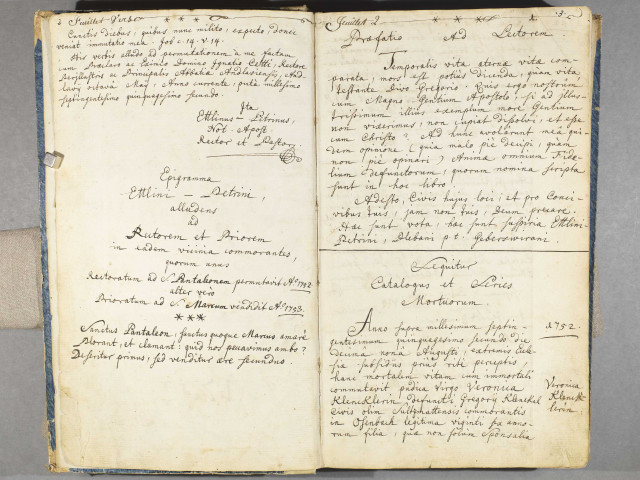 Feuillet Verso * * *
Cunctis diebus, quibus nunc milito, expecto, donec
veniat immutatio mea. Job c. 14. v. 14.
His verbis alludo ad permutationem a me factam
cum Domino Ignatio Rectore
ac Principalis Abbatiæ Andlaviensis,
octava May, Anno currente, puta millesimo
septingentesimo quinquagesimo secundo.
Ita
Ettlinus-Petrinus,
Not. Apost.
Rector et Pastor.
Epigramma
Ettlini-Petrini,
alludens
ad
Rectorem et Priorem
in eadem vicinia commorantes,
quorum unus
Rectoratum ad S. Pantaleonem permutavit Aº 1752
alter vero
Prioratum ad S. Marcum vendidit Aº 1753.
***
Sanctus Pantaleon, sanctus quoque Marcus amarè
Plorant; et clamant: quid nos peccavimus ambo?
Deseritur primus, sed venditur ære secundus.
Feuillet 2. * * * * 3
Præfatio Ad Lectorem
Temporalis vita æternæ vitæ com-
parata, mors est potius dicenda, quam vita,
testante Divo Gregorio. Quis ergo nostrûm
cum Magno Gentium Apostolo, si ad illus-
trissimum illius exemplum more Gentium
non vixerimus, non cupiat dissolvi, et esse
cum Christo? Ad hunc avolarunt meâ qui-
dem opinione (quia malo pie decipi, quàm
non piè opinari) Animæ omnium Fide-
lium defunctorum, quorum nomina scripta
sunt in hoc libro.
Adesto, Civis hujus loci; et pro Conci-
vibus tuis, jam non suis, Deum precare.
Hæc sunt vota, hæc sunt suspiria Ettlini-
Petrini, Plebani p.t. Geberswirani.
Sequitur
Catalogus et Series
Mortuorum.
Anno supra millesimum septin-
gentesimum quinquagesimo secundo die
decima nona Augusti, extremis Eccle-
siæ subsidiis prius rite perceptis,
hanc mortalem vitam cum immortali
commutavit pudica Virgo Veronica
KlencKlerin, defuncti Gregory Klenckel
Civis olim commorantis
in Osenbach legitima viginti sex anno-
rum filia, quæ non solùm Sponsalia
1752.
Veronica
Klenck-
lerin.